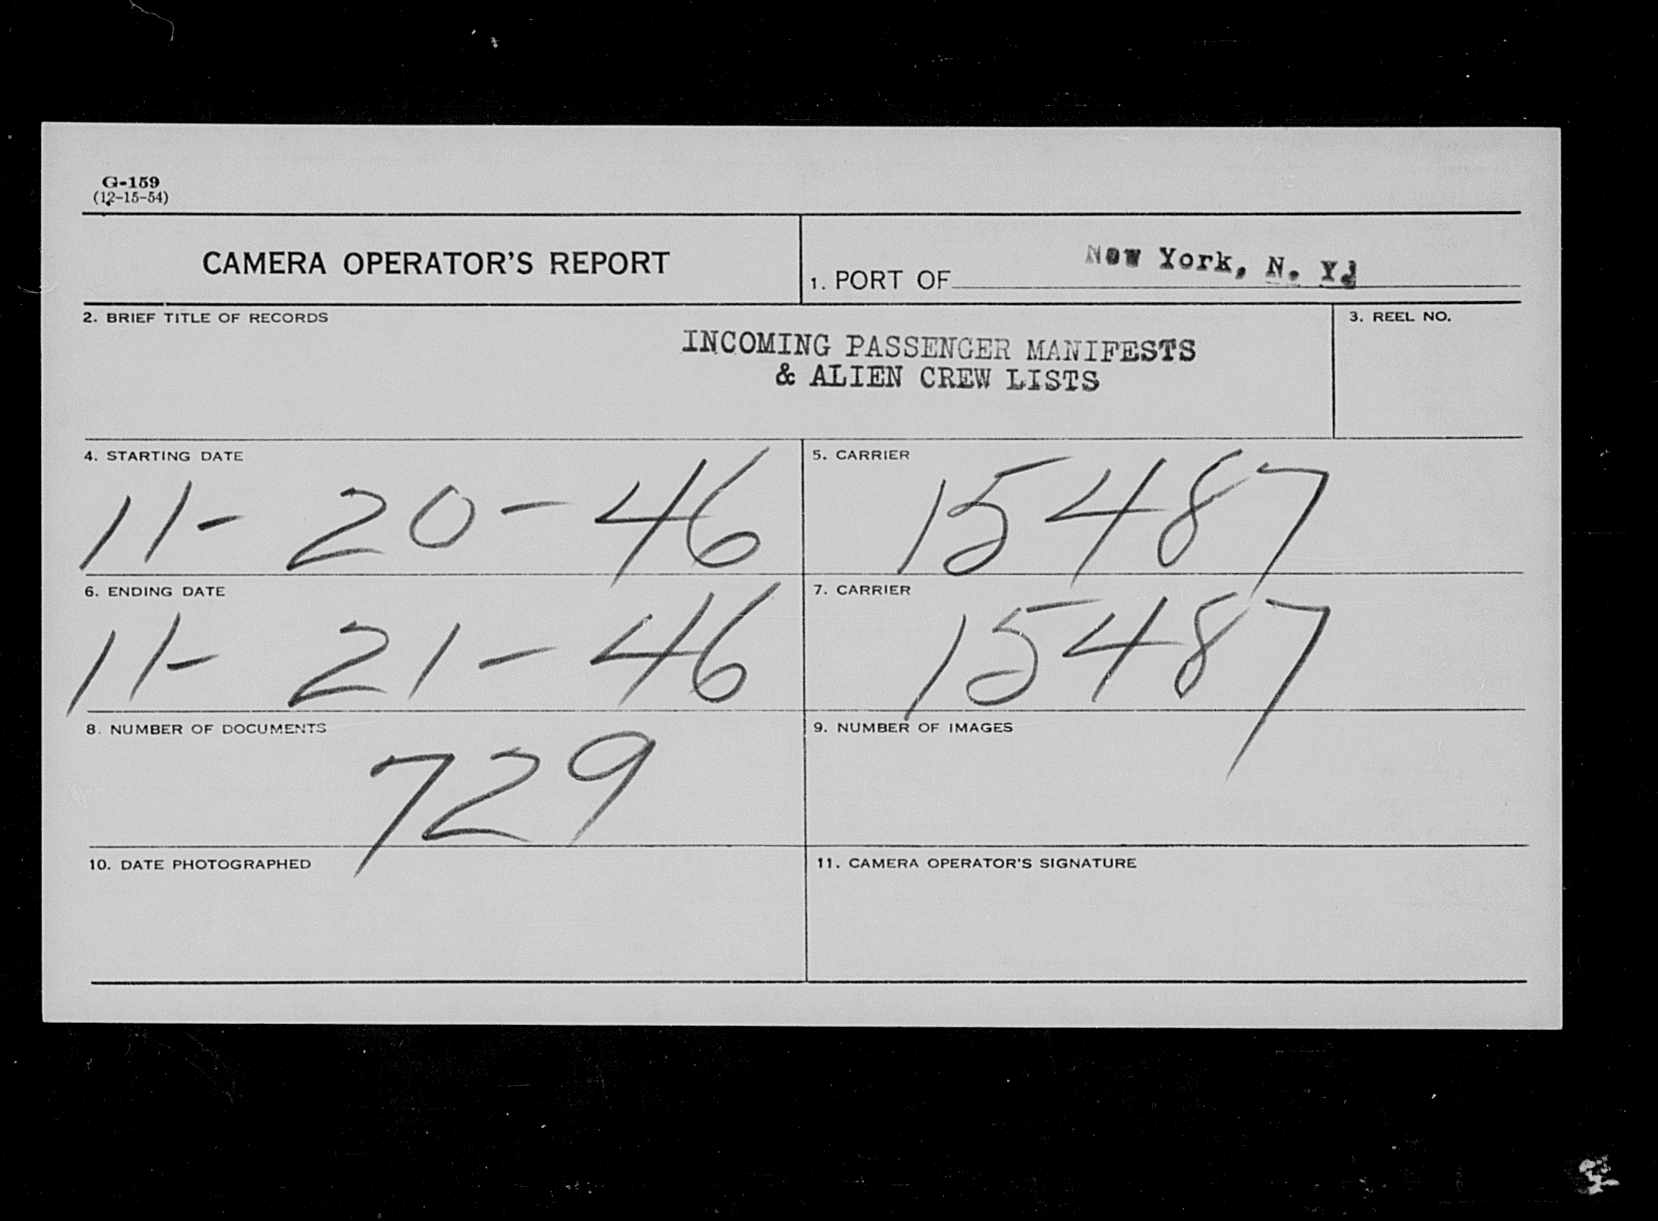 G-159
(12-15-54)
CAMERA OPERATOR'S REPORT
1. PORT OF New York, N. Y.
2. BRIEF TITLE OF RECORDS
INCOMING PASSENGER MANIFESTS
& ALIEN CREW LISTS
3. REEL NO.
4. STARTING DATE
11-20-46
5. CARRIER
15487
6. ENDING DATE
11-21-46
7. CARRIER
15487
8. NUMBER OF DOCUMENTS
729
9. NUMBER OF IMAGES
10. DATE PHOTOGRAPHED
11. CAMERA OPERATOR'S SIGNATURE